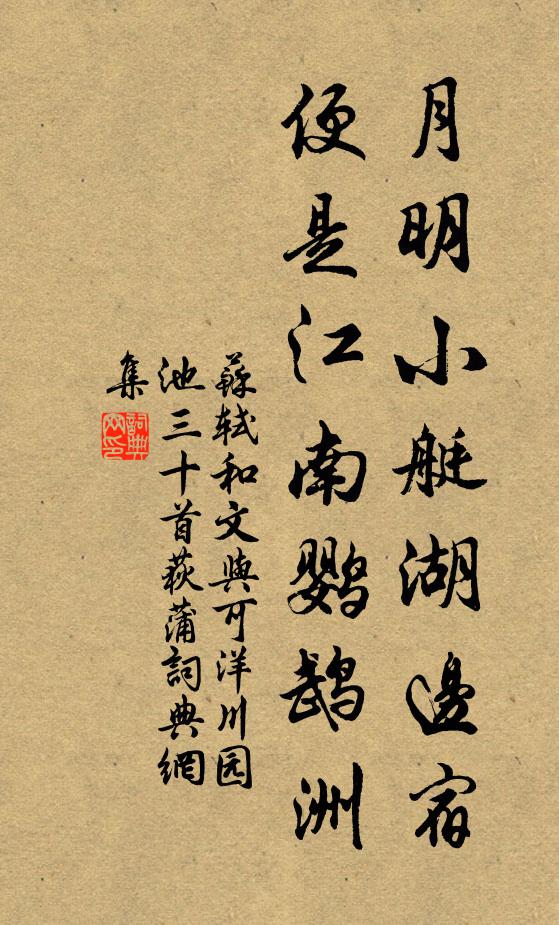 月明小艇湖邊宿
便是江南鸚鵡洲
蘇軾和文與可洋川园
池三十首荻蒲詞典網
集
詞典网印